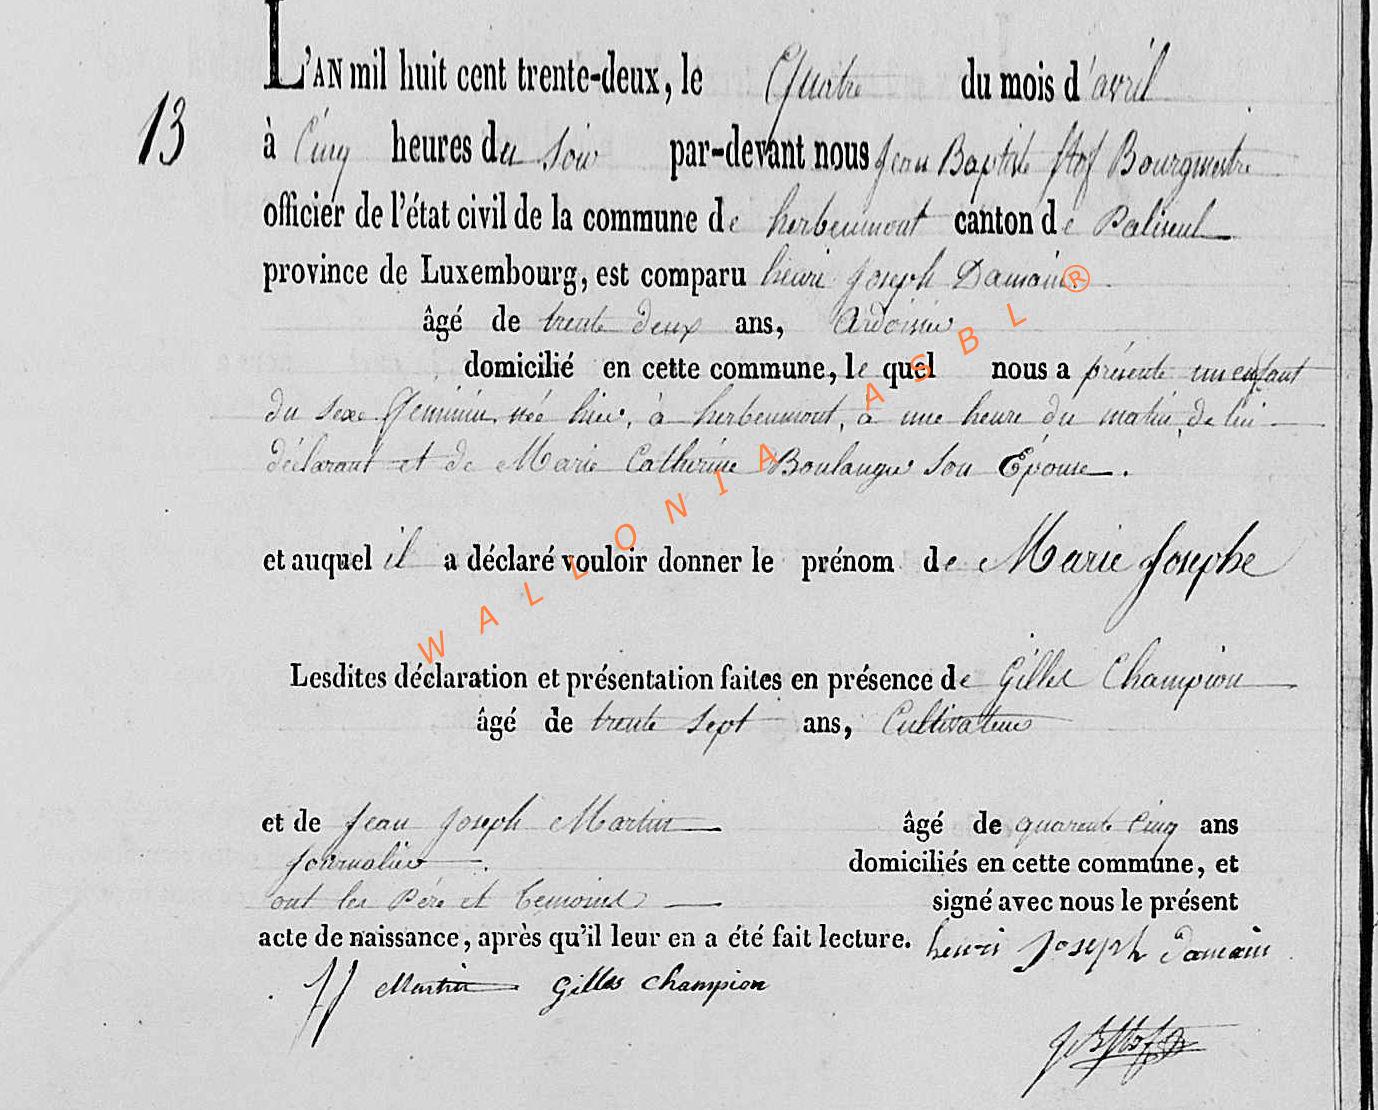 L'AN mil huit cent trente-deux, le Quatre du mois d'avril
13
à Cinq heures du Soir par-devant nous Jean Baptiste Stof Bourgmestre
officier de l'état civil de la commune de herbeumont canton de Paliseul
province de Luxembourg, est comparu henri Joseph Damain
âgé de trente deux ans, Ardoisier
domicilié en cette commune, le quel nous a présenté un enfant
du sexe Féminin, née hier, à herbeumont, à une heure du matin, de lui
déclarant et de Marie Catherine Boulanger Son Épouse.
et auquel il a déclaré vouloir donner le prénom de Marie Josephe
Lesdites déclaration et présentation faites en présence de Gilles Champion
âgé de trente sept ans, Cultivateur
et de Jean Joseph Martin âgé de quarente Cinq ans
Journalier domiciliés en cette commune, et
ont les Pére et temoins signé avec nous le présent
acte de naissance, après qu'il leur en a été fait lecture. henri Joseph damain
JJ Martin Gilles Champion
JB Stof
WALLONIA ASBL ®